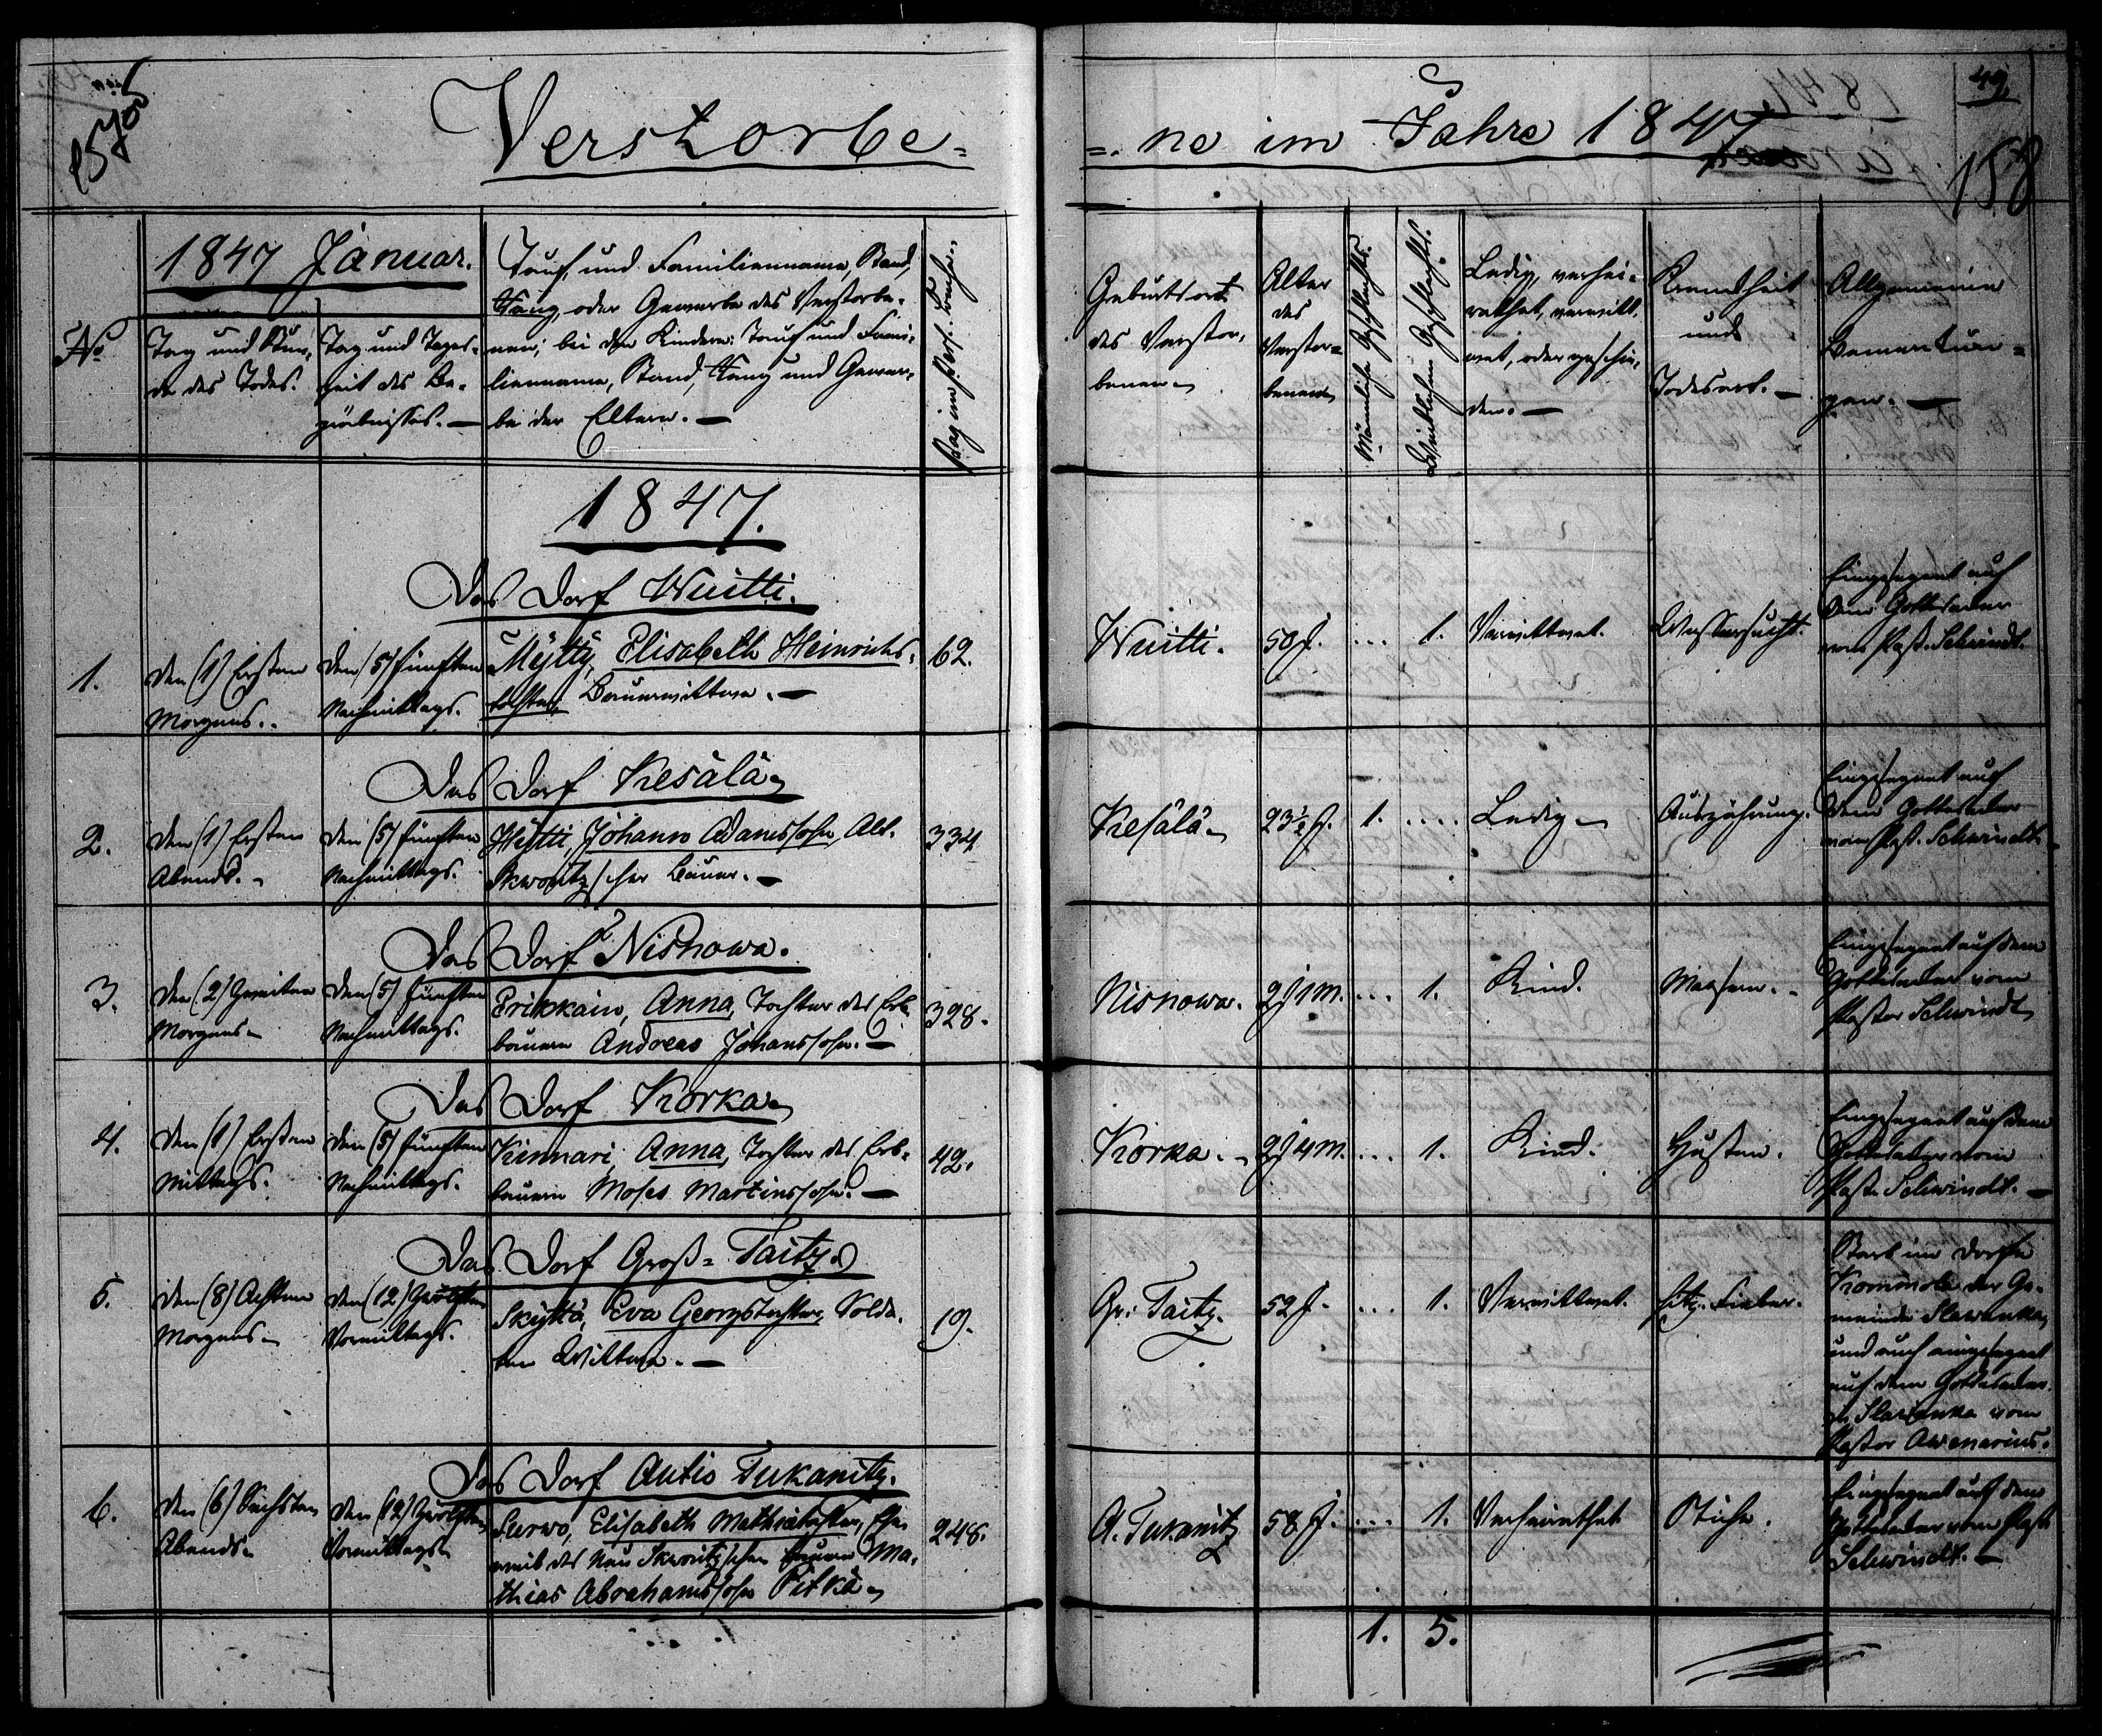 Verstorbe=
=ne im Jahre 1847
49.
158
1847 Januar.
No
Tag und Stun-
de des Todes.
Tag und Tages-
zeit des Be-
gräbnisses. —
Tauf und Familienname, Stand,
Rang, oder Gewerbe des Verstorbe-
nen; bei den Kindern: Tauf und Fami-
lienname, Stand, Rang und Gewer-
be der Eltern. —
Geburtsort
des Verstor-
benen
Alter
des
Verstor=
benen
Männlichen Geschlechts.
Weiblichen Geschlechts.
Ledig, verhei-
rathet, verwitt-
wet, oder geschie-
den. —
Krankheit
und
Todesart. —
Allgemeine
Bemerkun=
gen. —
1847.
Das Dorf Wuitti.
1.
den (1) Ersten
Morgens.
den (5) fünften
Nachmittags.
Mÿttÿ, Elisabeth Heinrichs-
tochter, Bauerwittwe. —
62.
Wuitti.
50 J.
...
1.
Verwittwet.
Wassersucht.
Eingesegnet auf
dem Gottesacker
vom Past. Schwindt.
Das Dorf Kesälä
2.
den (1) Ersten
Abends.
den (5) fünften
Nachmittags.
Hÿtti, Johann Adamssohn, Alt-
Skworitz'scher Bauer. —
334
Kesälä
23½ J.
1.
....
Ledig
Auszehrung.
Eingesegnet auf
dem Gottesacker
vom Past. Schwindt.
Das Dorf Nisnowa.
3.
den (2) Zweiten
Morgens
den (5) fünften
Nachmittags.
Erikkain, Anna, Tochter des Erb-
bauern Andreas Johanssohn. —
328.
Nisnowa.
2 J 1 M.
...
1.
Kind.
Masern.
Eingesegnet auf dem
Gottesacker vom
Pastor Schwindt
Das Dorf Korka
4.
den (1) Ersten
Mittags.
den (5) fünften
Nachmittags.
Kinnari, Anna, Tochter des Erb-
bauern Moses Martinssohn. —
42.
Korka.
2 J 4 M.
...
1.
Kind.
Husten.
Eingesegnet auf dem
Gottesacker vom
Past. Schwindt. —
Das Dorf Groß=Taitz
5.
den (8) Achten
Morgens
den (12) Zwölften
Vormittags.
Skÿttä, Eva Georgstochter, Solda-
ten Wittwe. —
19.
Gr: Taitz.
52 J.
...
1.
Verwittwet.
hitz. Fieber.
Starb im Dorfe
der Ge-
meinde Slawanka,
und auch eingesegnet
auf dem Gottesacker
Slawanka vom
Pastor Awenarius.
Das Dorf Autio Tukanitz.
6.
den (6) Sechsten
Abends
den (12) Zwölften
Vormittags
Surwo, Elisabeth Mathiastochter, Ehe-
weib des Neu Skworitz'schen Bauern Ma-
thias Abrahamssohn Pitkä
248.
A. Tukanitz
58 J.
...
1.
Verheirathet
Stiche.
Eingesegnet auf dem
Gottesacker vom Past.
Schwindt. —
1.
5.